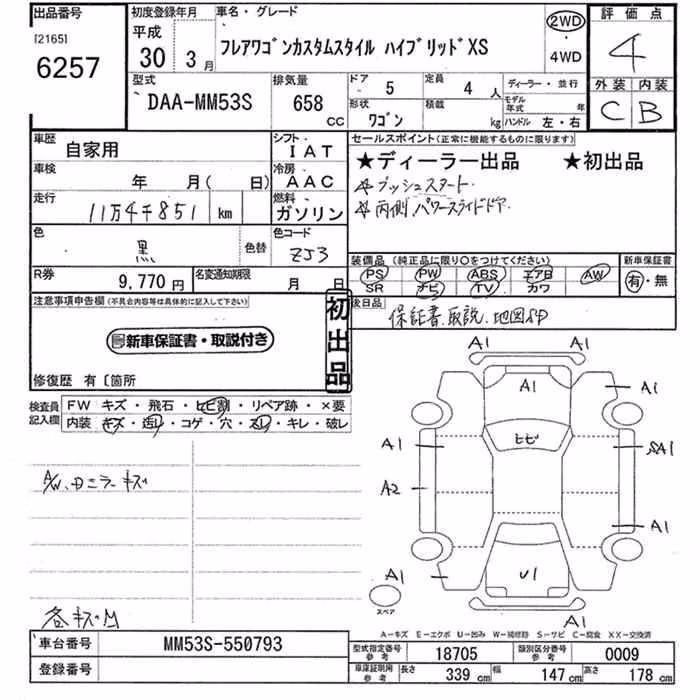 出品番号 初度登録年月 車名・グレード 2WD 評価点
[2165] 平成
6257 30年 3月 フレアワゴンカスタムスタイル ハイブリッドXS ・ 4
4WD
型式 排気量 ドア 5 定員 4人 ディーラー・並行 外装 内装
DAA-MM53S 658 CC 形状 ワゴン 積載 kg モデル年式 年 C B
ハンドル 左・右
車歴 自家用 シフト IAT セールスポイント(正常に機能するものに限ります)
車検 年 月( 日) 冷房 AAC ★ディーラー出品 ★初出品
走行 11万4千851 km 燃料 ガソリン ☆プッシュスタート
☆両側パワースライドドア
色 黒 色替 色コード ZJ3
装備品(純正品に限り○をつけてください) 新車保証書
R券 9,770円 名変通知期限 月 日 PS PW ABS エアB AW 有・無
SR ナビ TV カワ
注意事項申告欄(不具合内容等は具体的に記入して下さい) 初出品 後日品 保証書、取説、地図SD
新車保証書・取説付き
修復歴 有〔箇所
検査員記入欄 FW キズ・飛石・ヒビ割・リペア跡・×要
内装 キズ・汚レ・コゲ・穴・スレ・キレ・破レ
A1
A1
A1
ヒビ
A1
SA1
A2
A/W、Dミラーキズ
A1
A1
U1
スペア
A1
各キズM
A-キズ E-エクボ U-凹み W-補修跡 S-サビ C-腐食 XX-交換済
車台番号 MM53S-550793 型式指定番号 参考 18705 類別区分番号 参考 0009
登録番号 車庫証明用 参考 長さ 339 cm 幅 147 cm 高さ 178 cm